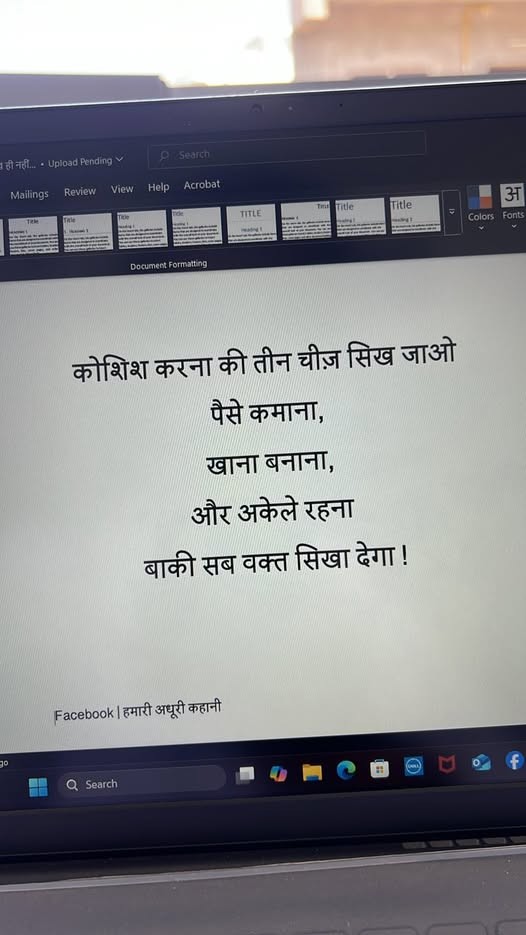 ही नहीं... • Upload Pending
Search
Mailings Review View Help Acrobat
Title Title Title Title TITLE Title Title Title
Heading 1
Colors Fonts
Document Formatting
कोशिश करना की तीन चीज़ सिख जाओ
पैसे कमाना,
खाना बनाना,
और अकेले रहना
बाकी सब वक्त सिखा देगा !
Facebook | हमारी अधूरी कहानी
Search